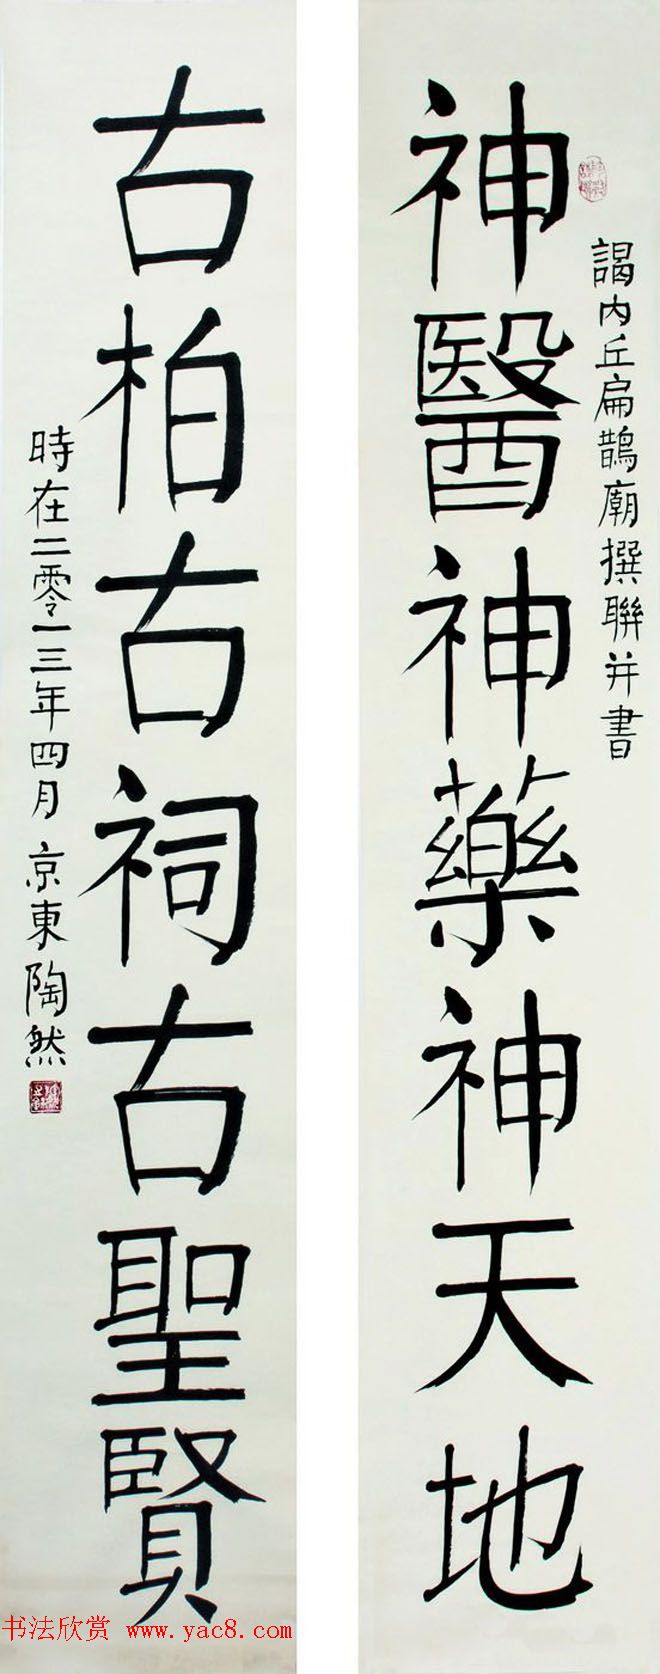 謁内丘扁鵲廟撰聯并書
神醫神藥神天地
古柏古祠古聖賢
時在二零一三年四月京東陶然
书法欣赏 www.yac8.com